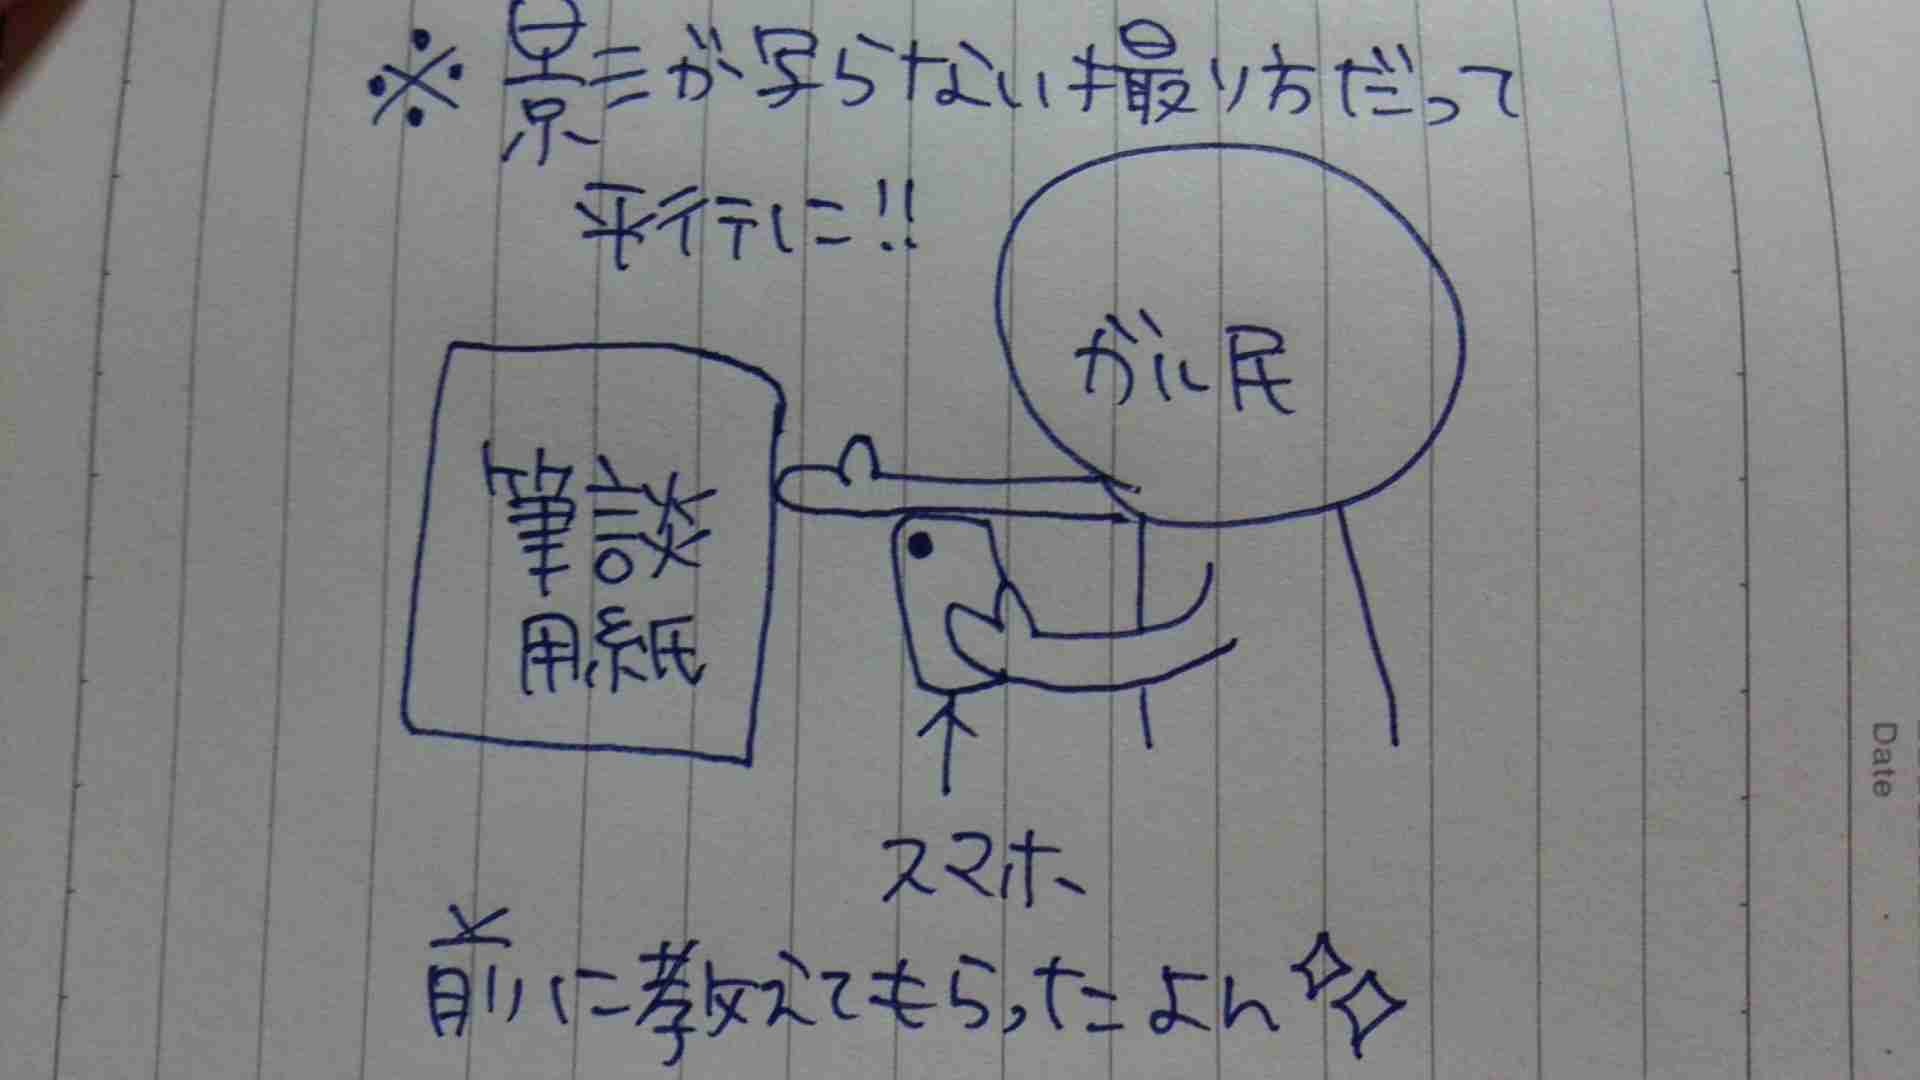 ※影が写らない撮り方だって
平行に!!
がに民
筆談
用紙
スマホ
前に教えてもらったよん
Date